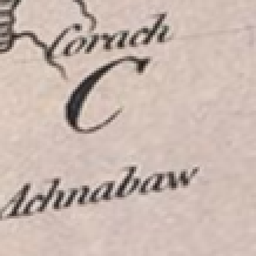 Corach
C
Achnabaw